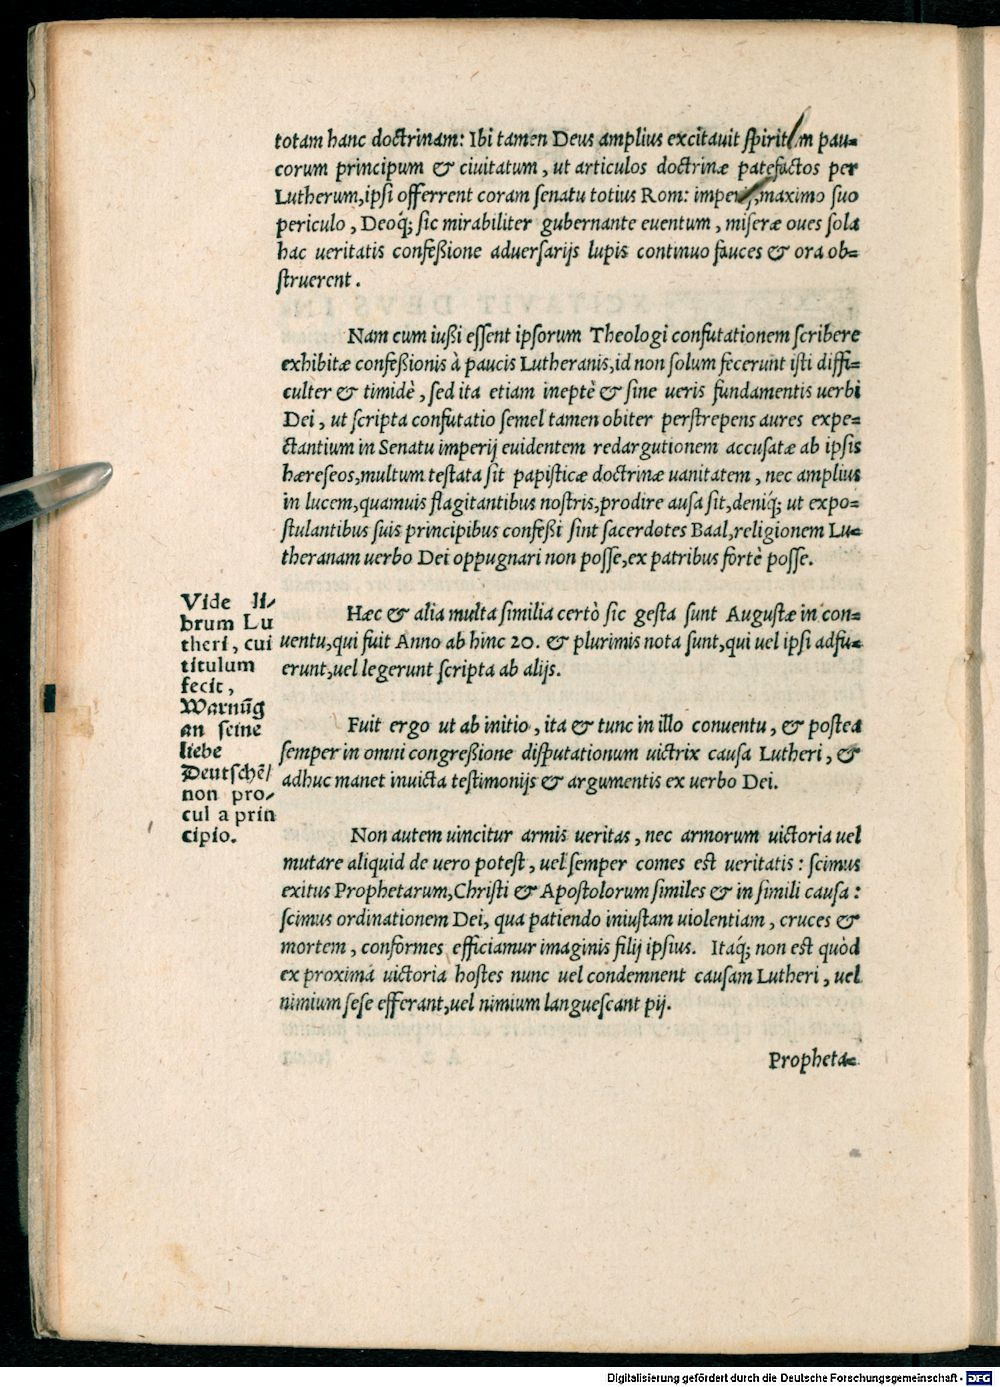 totam hanc doctrinam: Ibi tamen Deus amplius excitauit spiritum pau=
corum principum & ciuitatum, ut articulos doctrinæ patefactos per
Lutherum,ipsi offerrent coram senatu totius Rom: imperij,maximo suo
periculo, Deoq́; sic mirabiliter gubernante euentum, miseræ oues sola
hac ueritatis confeßione aduersarijs lupis continuo fauces & ora ob=
struerent.
Nam cum iußi essent ipsorum Theologi confutationem scribere
exhibitæ confeßionis à paucis Lutheranis,id non solum fecerunt isti diffi=
culter & timidè, sed ita etiam ineptè & sine ueris fundamentis uerbi
Dei, ut scripta confutatio semel tamen obiter perstrepens aures expe=
ctantium in Senatu imperij euidentem redargutionem accusatæ ab ipsis
hæreseos,multum testata sit papisticæ doctrinæ uanitatem, nec amplius
in lucem,quamuis flagitantibus nostris,prodire ausa sit,deniq́; ut expo=
stulantibus suis principibus confeßi sint sacerdotes Baal,religionem Lu=
theranam uerbo Dei oppugnari non posse,ex patribus fortè posse.
Vide li/
brum Lu
theri, cui
titulum
fecit,
Warnūg
an seine
liebe
Deutschē/
non pro/
cul a prin
cipio.
Hæc & alia multa similia certò sic gesta sunt Augustæ in con=
uentu,qui fuit Anno ab hinc 20. & plurimis nota sunt,qui uel ipsi adfu=
erunt,uel legerunt scripta ab alijs.
Fuit ergo ut ab initio, ita & tunc in illo conuentu, & postea
semper in omni congreßione disputationum uictrix causa Lutheri, &
adhuc manet inuicta testimonijs & argumentis ex uerbo Dei.
Non autem uincitur armis ueritas, nec armorum uictoria uel
mutare aliquid de uero potest, uel semper comes est ueritatis: scimus
exitus Prophetarum,Christi & Apostolorum similes & in simili causa:
scimus ordinationem Dei, qua patiendo iniustam uiolentiam, cruces &
mortem, conformes efficiamur imaginis filij ipsius. Itaq́; non est quòd
ex proxima uictoria hostes nunc uel condemnent causam Lutheri, uel
nimium sese efferant,uel nimium languescant pij.
Propheta=
Digitalisierung gefördert durch die Deutsche Forschungsgemeinschaft - DFG